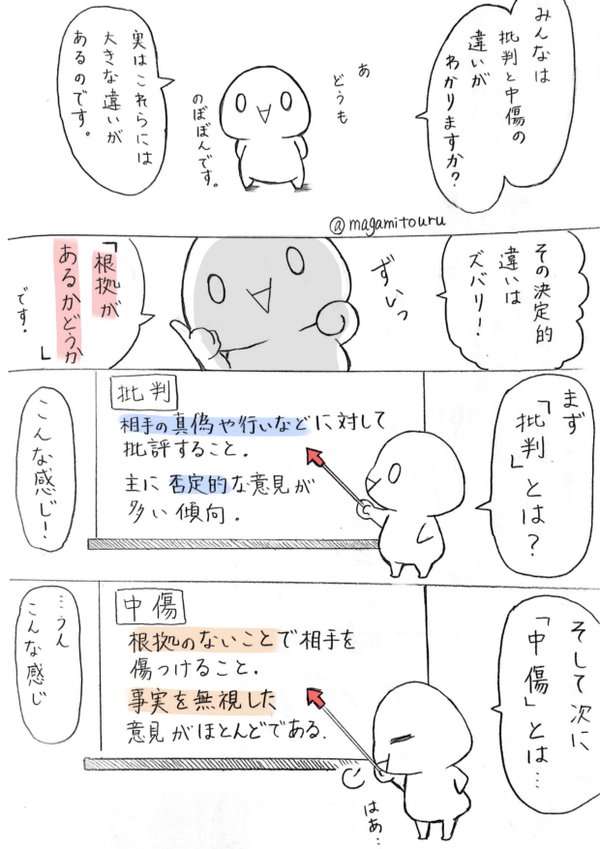 みんなは
批判と中傷の
違いが
わかりますか?
あ
どうも
のぼぼんです。
実はこれらには
大きな違いが
あるのです。
@magamitouru
その決定的
違いは
ズバリ!
ずいっ
「根拠が
あるかどうか」
です!
まず
「批判」とは?
批判
相手の真偽や行いなどに対して
批評すること.
主に否定的な意見が
多い傾向.
こんな感じ!
そして次に
「中傷」とは…
中傷
根拠のないことで相手を
傷つけること.
事実を無視した
意見がほとんどである.
はぁ…
…うん
こんな感じ